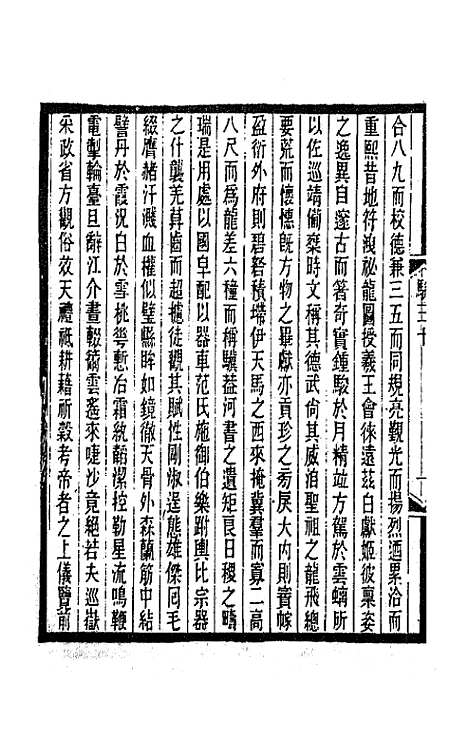 合八九而校德兼三五而同規亮觀光而揚烈迺累洽而
重熙昔地符洩祕龍圖授羲王會徠遠茲白獻姬彼稟姿
之逸異自邃古而著奇實鍾駿於月精竝方駕於雲螭所
以佐巡靖偷桀時文稱其德武尚其威洎聖祖之龍飛總
要荒而懷憓旣方物之畢獻亦貢珍之叅戾大內則賨幏
盈衍外府則碧砮積墆伊天馬之西來掩冀羣而寡二高
八尺而爲龍差六種而稱驥益河書之遺矩良日稷之疇
瑞是用處以國皁配以器車范氏施御伯樂跗輿比宗器
之什襲羌萛齒而超攄徒觀其賦性剛淑逞態雄傑囘毛
綴膺赭汗濺血權似璧縣眸如鏡徹天骨外森蘭筋中結
譬丹於霞況白於雪桃㡇慙冶霜紈顧潔控勒星流鳴鞭
電掣輪臺旦辭江介晝輟籋雲遙來啑沙竟絕若夫巡嶽
采政省方觀俗效天禮祇耕藉祈穀考帝者之上儀覽前